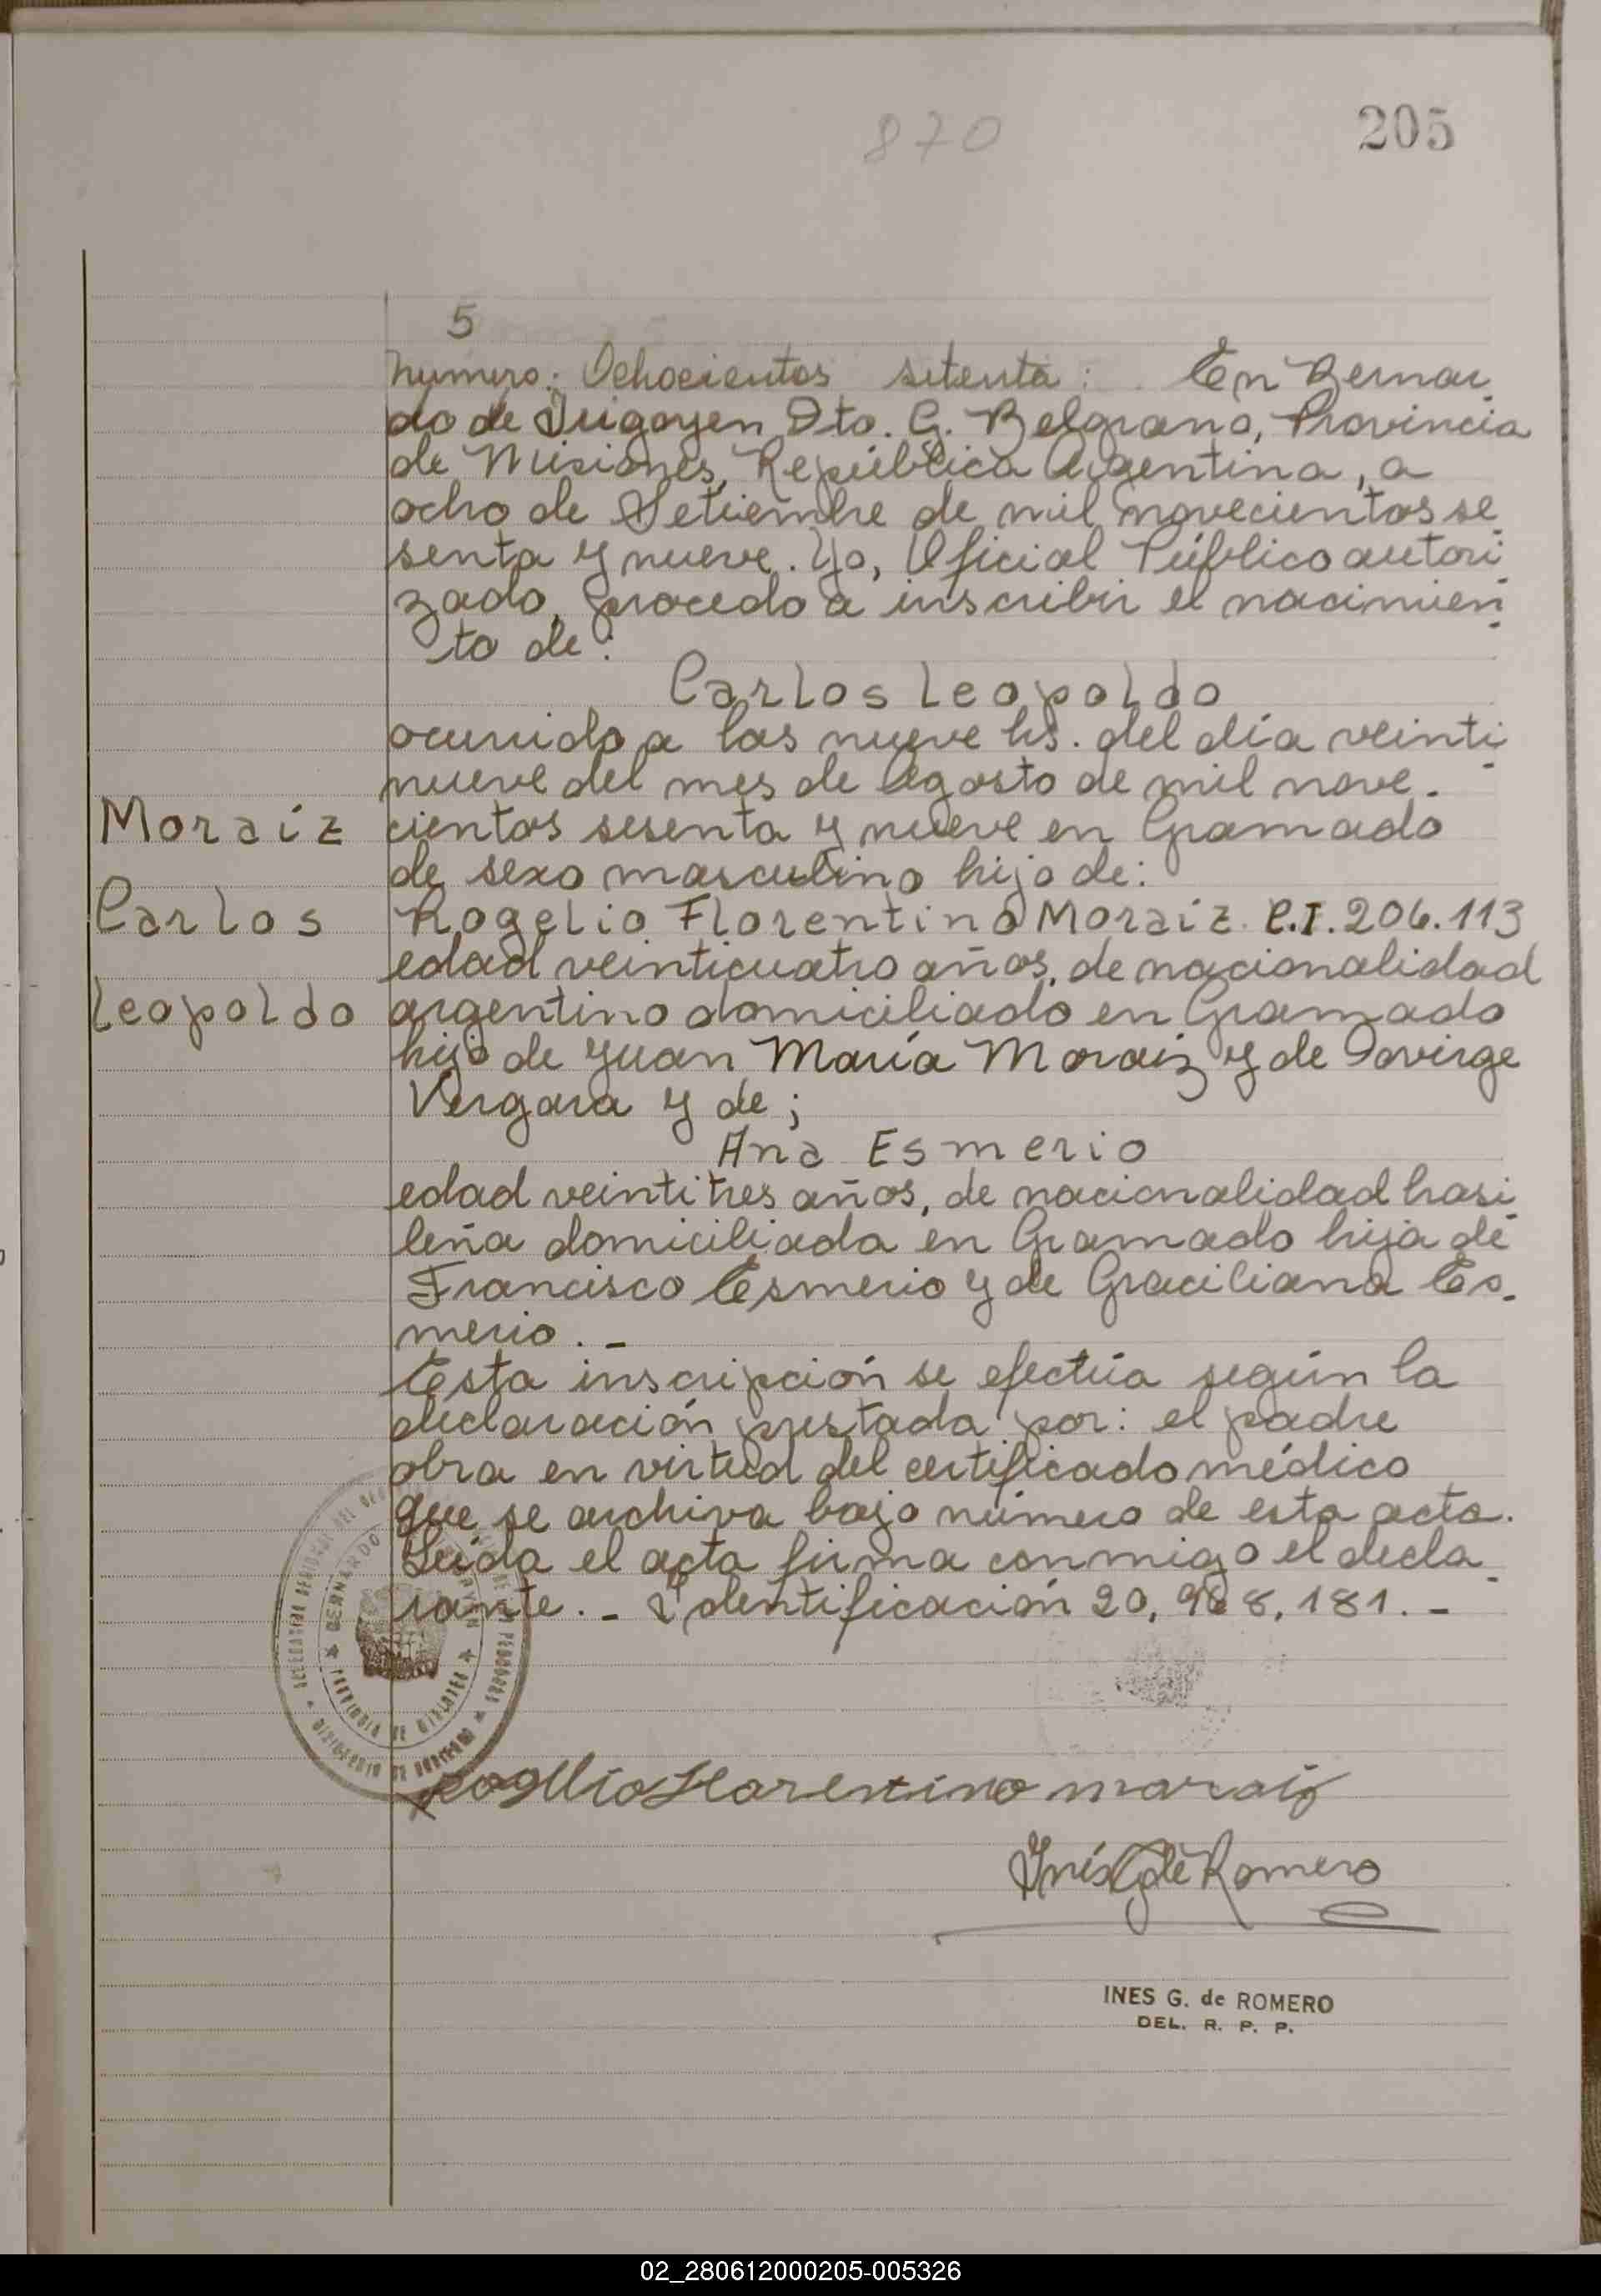 870
205
5
Número: Ochocientos setenta: En Bernar
do de Irigoyen Dto. G. Belgrano, Provincia
de Misiones, República Argentina, a
ocho de Setiembre de mil novecientos se
senta y nueve. Yo, Oficial Público autori
zado, procedo a inscribir el nacimien
to de:
Carlos Leopoldo
ocurrido a las nueve hs. del día veinti
nueve del mes de Agosto de mil nove-
Moraiz
cientos sesenta y nueve en Gramado
de sexo masculino hijo de:
Carlos
Rogelio Florentino Moraiz C.I. 206.113
edad veinticuatro años, de nacionalidad
Leopoldo
argentino domiciliado en Gramado
hijo de Juan María Moraiz y de
Vergara y de;
Ana Esmerio
edad veintitres años, de nacionalidad brasi
leña domiciliada en Gramado hija de
Francisco Esmerio y de Graciliana Es-
merio. -
Esta inscripción se efectúa según la
declaración prestada por: el padre
obra en virtud del certificado médico
que se archiva bajo número de esta acta.
Leída el acta firma conmigo el decla
rante. - Identificación 20, 988, 181. -
BERNARDO DE IRIGOYEN
PROVINCIA DE MISIONES
MINISTERIO DE GOBIERNO
Rogelio Florentino moraiz
Inés G de Romero
INES G. de ROMERO
DEL. R. P. P.
02_280612000205-005326